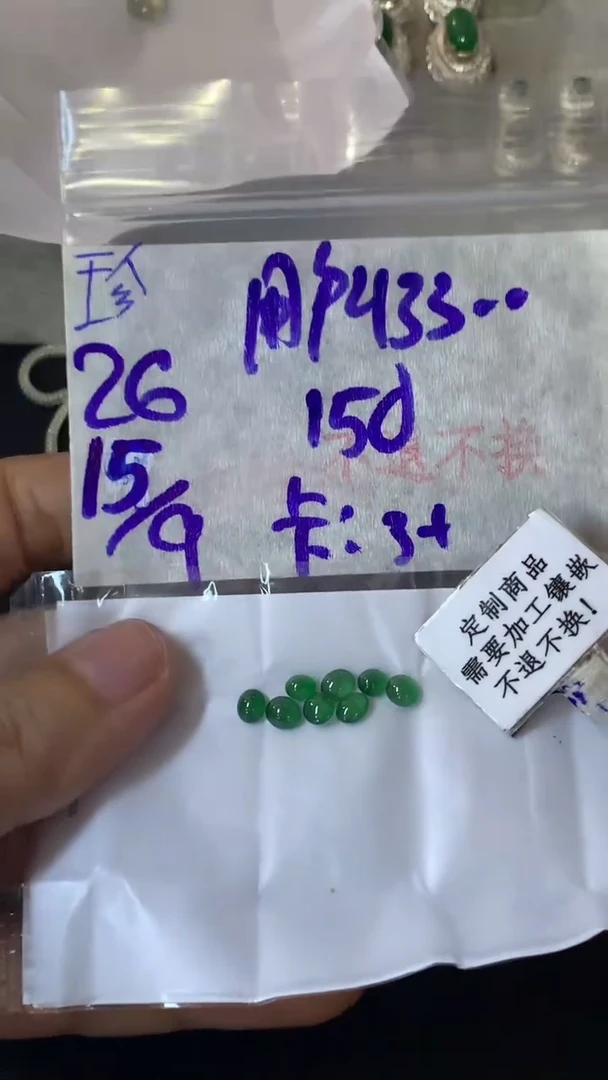 珍
用户433..
26
150
不退不换
15/9
卡:3+
定制商品
需要加工镶嵌
不退不换!